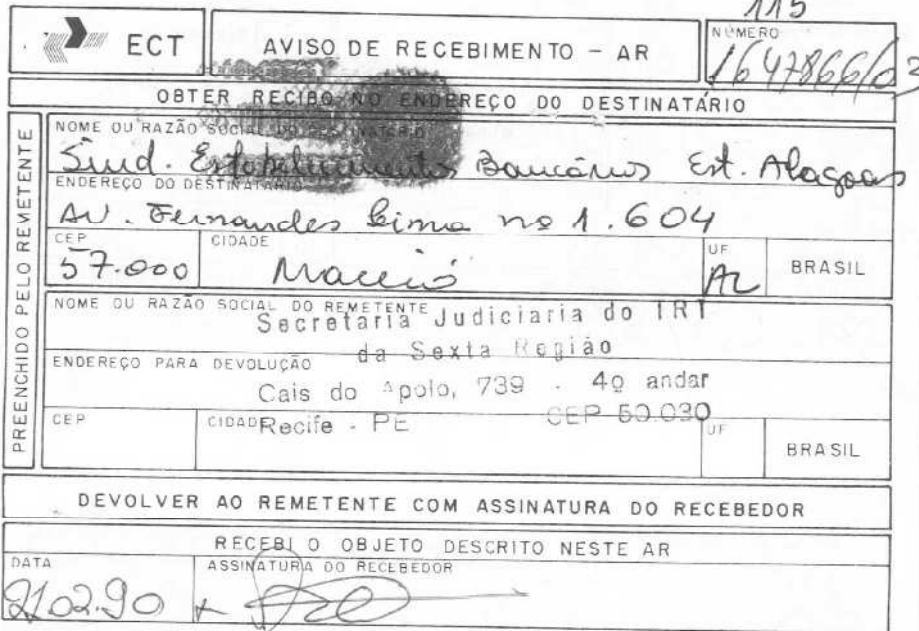 115
ECT
AVISO DE RECEBIMENTO - AR
NÚMERO
OBTER RECIBO NO ENDEREÇO DO DESTINATÁRIO
PREENCHIDO PELO REMETENTE
NOME OU RAZÃO SOCIAL DO DESTINATÁRIO
Sind. Estabelecimentos Bancários Est. Alagoas
ENDEREÇO DO DESTINATÁRIO
Av. Fernandes Lima nº 1.604
CEP
57.000
CIDADE
Maceió
UF
AL
BRASIL
NOME OU RAZÃO SOCIAL DO REMETENTE
Secretaria Judiciaria do TRT
da Sexta Região
ENDEREÇO PARA DEVOLUÇÃO
Cais do Apolo, 739 - 4º andar
CEP
CIDADE
Recife - PE CEP 50.030
UF
BRASIL
DEVOLVER AO REMETENTE COM ASSINATURA DO RECEBEDOR
RECEBI O OBJETO DESCRITO NESTE AR
DATA
21.02.90
ASSINATURA DO RECEBEDOR